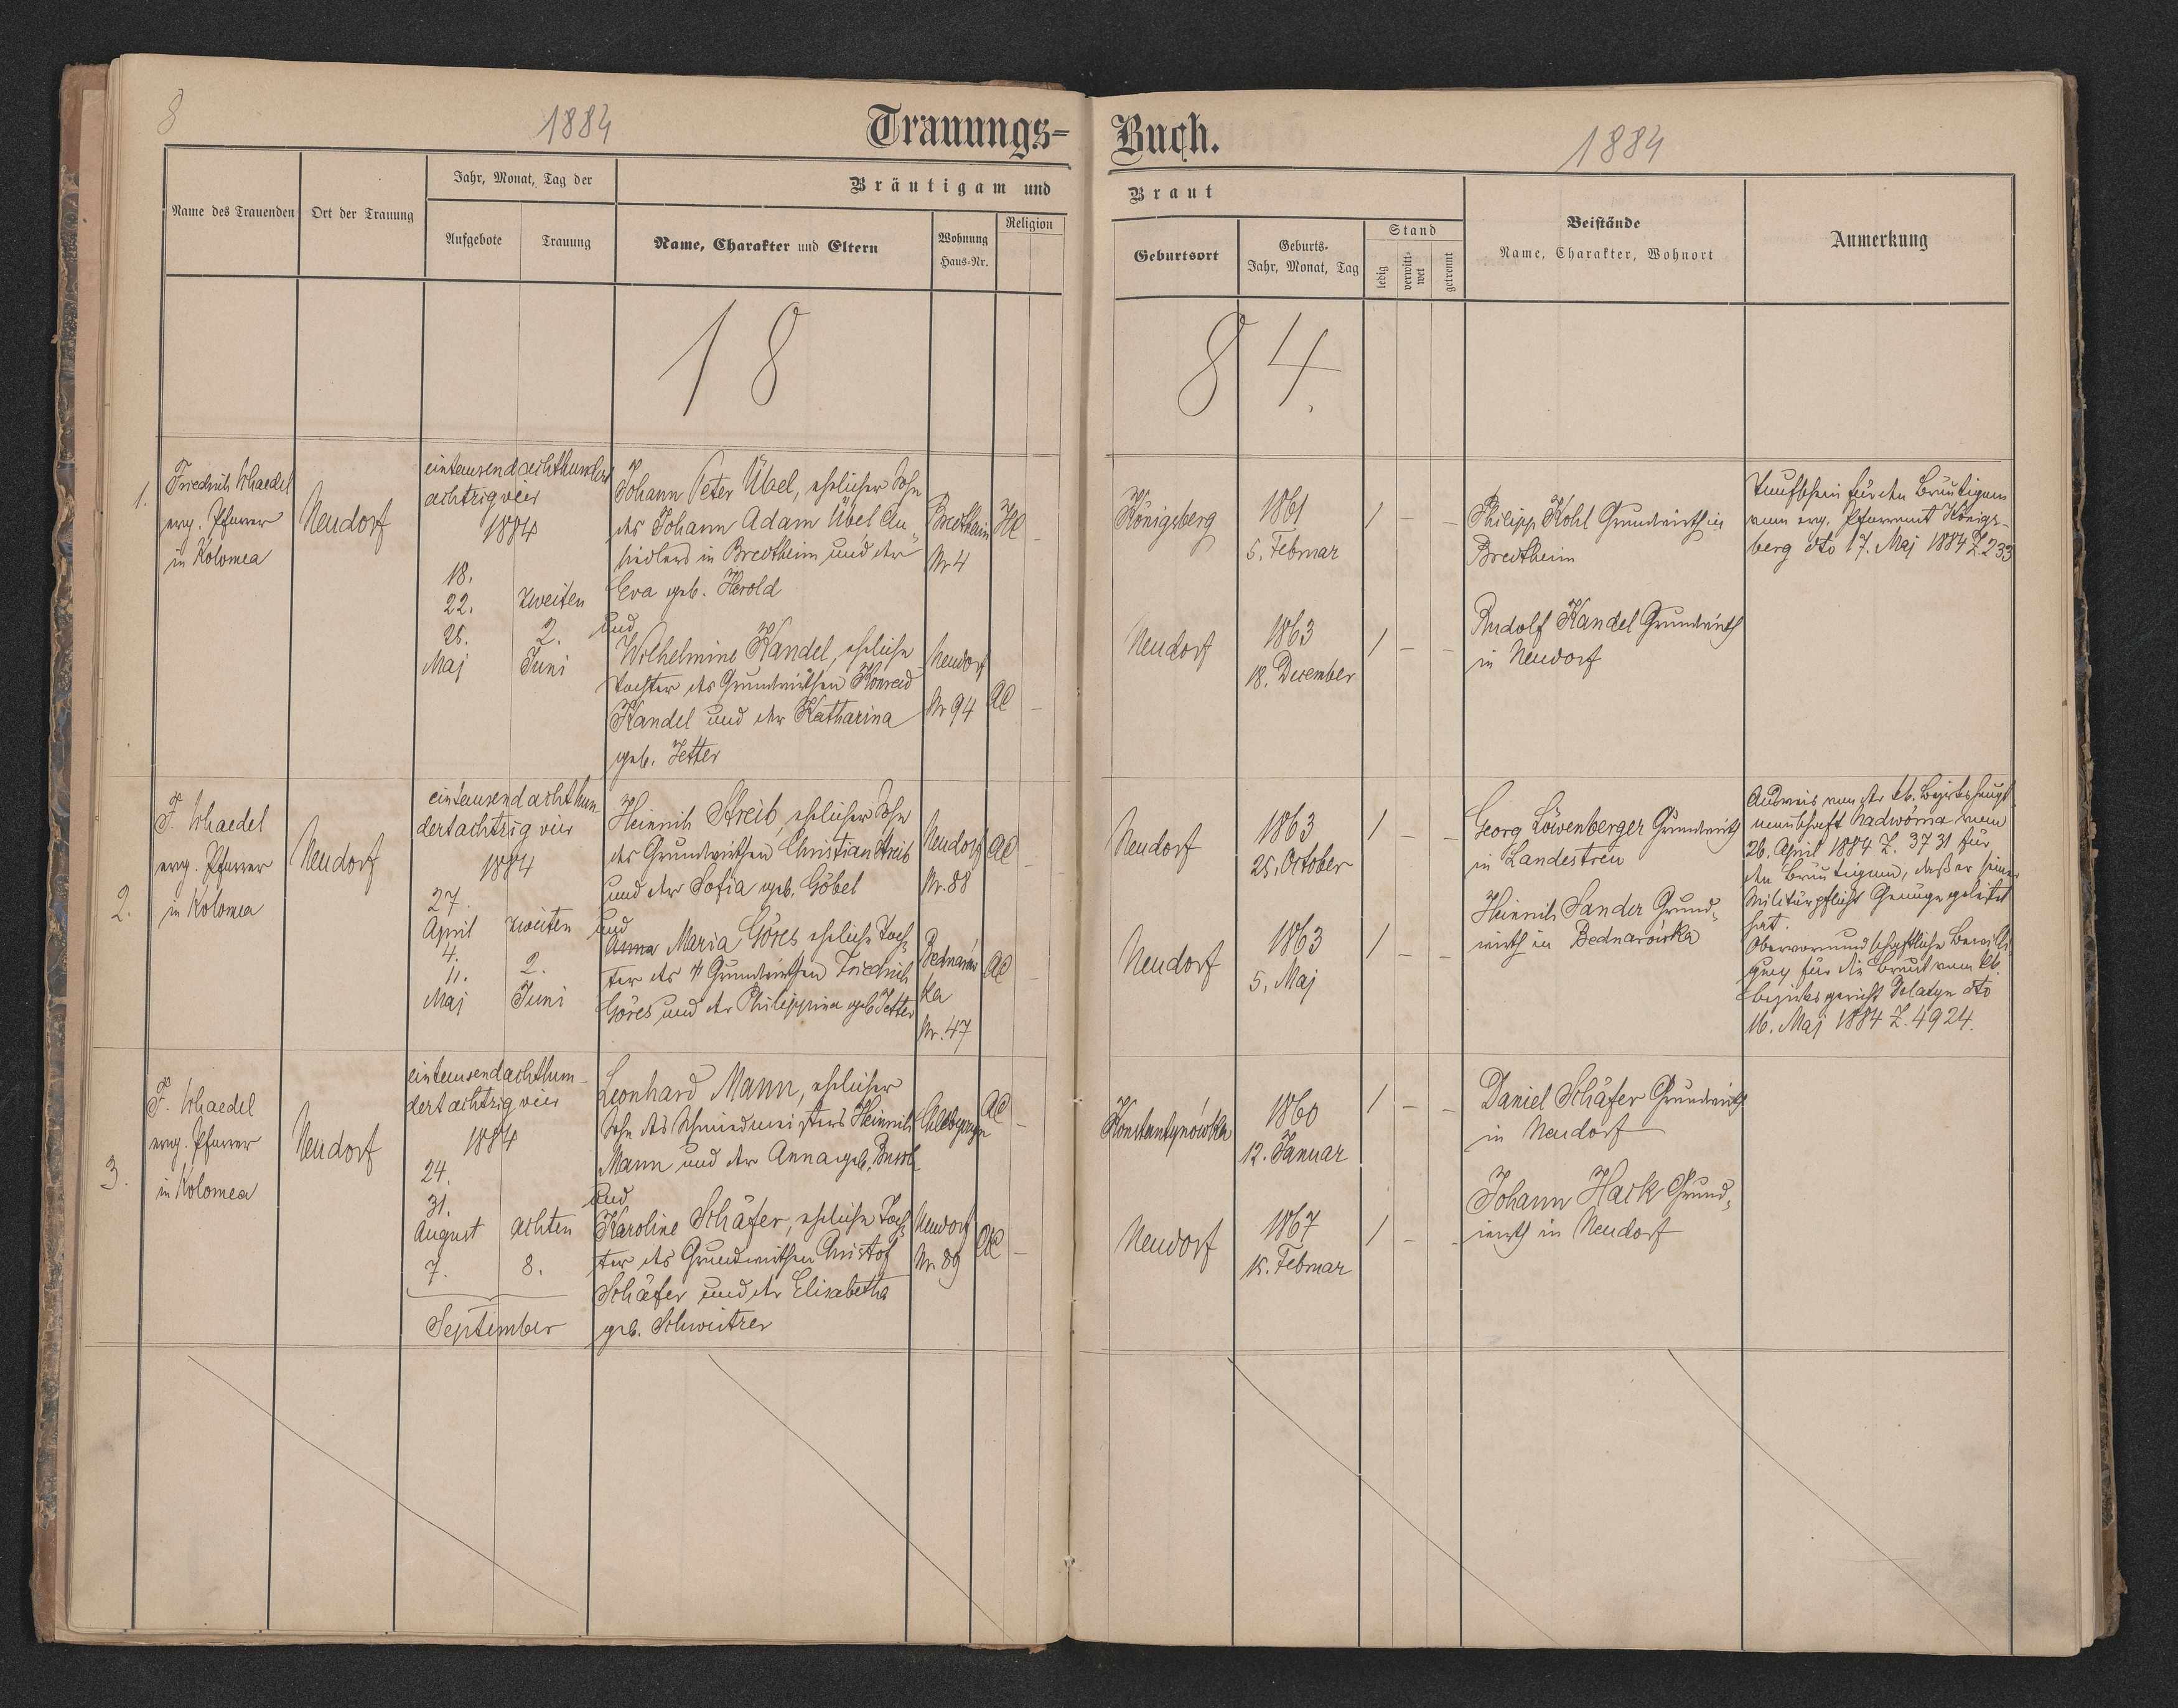 8
1884
Trauungs-
Buch.
1884
Name des Trauenden
Ort der Trauung
Jahr, Monat, Tag der
Aufgebote
Trauung
Bräutigam und
Name, Charakter und Eltern
Wohnung
Haus-Nr.
Religion
Braut
Geburtsort
Geburts-
Jahr, Monat, Tag
Stand
ledig
verwitt-
wet
getrennt
Beistände
Name, Charakter, Wohnort
Anmerkung
18
84.
1.
Friedrich Schaedel
evg. Pfarrer
in Kolomea
Neudorf
eintausendachthundert
achtzigvier
1884
18.
22.
25.
Maj
zweiten
2.
Juni
Johann Peter Übel, ehelicher Sohn
des Johann Adam Übel An-
siedlers in Bredtheim und der
Eva geb. Herold
und
Wilhelmine Kandel, eheliche
Tochter des Grundwirthen Konrad
Kandel und der Katharina
geb. Jetter
Bredtheim
Nr 4
HC
Neudorf
Nr 94
AC
Königsberg
1861
5. Februar
Neudorf
1863
18. December
Philipp Kohl Grundwirth in
Bredtheim
Rudolf Kandel Grundwirth
in Neudorf
Taufschein für den Bräutigam
vom evg. Pfarramt Königs-
berg dto 17. Maj 1884 Z. 233
2.
F. Schaedel
evg. Pfarrer
in Kolomea
Neudorf
eintausendachthun-
dertachtzigvier
1884
27.
April
4.
11.
Maj
zweiten
2.
Juni
Heinrich Streib, ehelicher Sohn
des Grundwirthen Christian Streib
und der Sofia geb. Göbel
und
Anna Maria Göres eheliche Toch-
ter des Grundwirthen Friedrich
Göres und der Philippina geb Jetter
Neudorf
Nr. 88
AC
Bednarów
ka
Nr. 47
AC
Neudorf
1863
25. October
Neudorf
1863
5. Maj
Georg Löwenberger Grundwirth
in Landestreu
Heinrich Sander Grund-
wirth in Bednarówka
Ausweis von der kk. Bezirkshaupt
mannschaft Nadwórna vom
26. April 1884 Z. 3731 für
den Bräutigam, daß er seiner
Militärpflicht Genüge geleistet
hat.
Obervormundschaftliche Bewilli-
gung für die Braut vom kk.
Bezirksgericht Delatyn dto
16. Maj 1884 Z. 4924.
3.
F. Schaedel
evg. Pfarrer
in Kolomea
Neudorf
eintausendachthun-
dertachtzigvier
1884
24.
31.
August
7.
September
achten
8.
Leonhard Mann, ehelicher
Sohn des Schmiedmeisters Heinrich
Mann und der Anna geb.
und
Karoline Schäfer, eheliche Toch-
ter des Grundwirthen Christof
Schäfer und der Elisabetha
geb. Schweitzer
AC
Neudorf
Nr. 89
AC
Konstantynówka
1860
12. Januar
Neudorf
1867
15. Februar
Daniel Schäfer Grundwirth
in Neudorf
Johann Hack Grund-
wirth in Neudorf